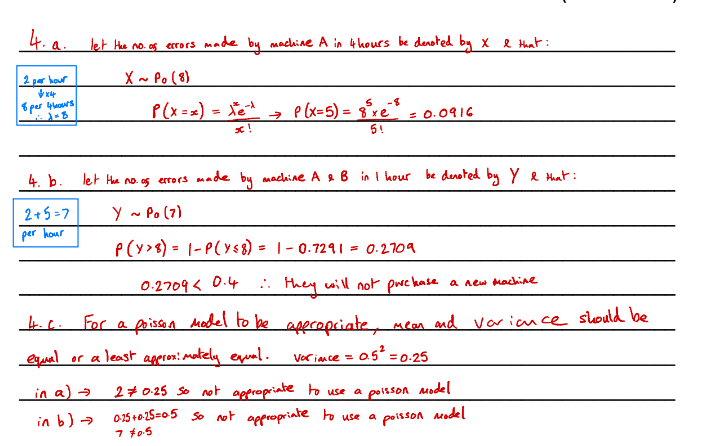 4. a. let the no. of errors made by machine A in 4 hours be denoted by X & that:
2 per hour
↓ x4
8 per 4hours
∴ λ = 8
X ~ Po (8)
P(X = x) = λˣe^-λ / x! → P(X=5) = 8⁵ x e⁻⁸ / 5! = 0.0916
4. b. let the no. of errors made by machine A & B in 1 hour be denoted by Y & that:
2+5=7
per hour
Y ~ Po (7)
P(Y>8) = 1-P(Y≤8) = 1 - 0.7291 = 0.2709
0.2709 < 0.4 ∴ they will not purchase a new machine
4. c. For a poisson model to be appropriate, mean and variance should be
equal or a least approximately equal. variance = 0.5² = 0.25
in a) → 2 ≠ 0.25 so not appropriate to use a poisson model
in b) → 0.25+0.25=0.5 so not appropriate to use a poisson model
7 ≠ 0.5